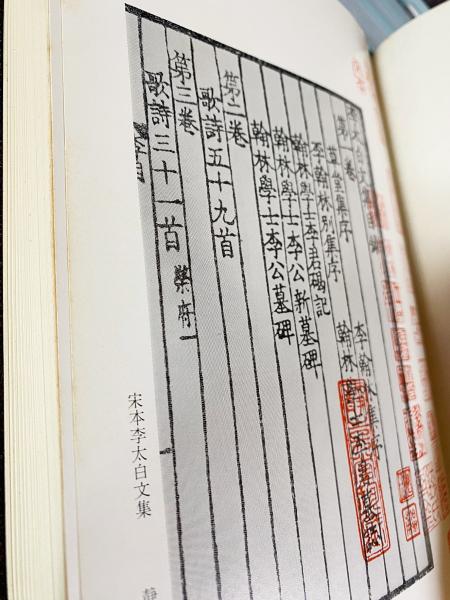 李太白文集目録
第一卷
草堂集序 李翰林集序
李翰林別集序 翰林
翰林學士李君碣記
翰林學士李公新墓碑
翰林學士李公墓碑
第二卷
歌詩五十九首
第三卷
歌詩三十一首 樂府一
宋本李太白文集